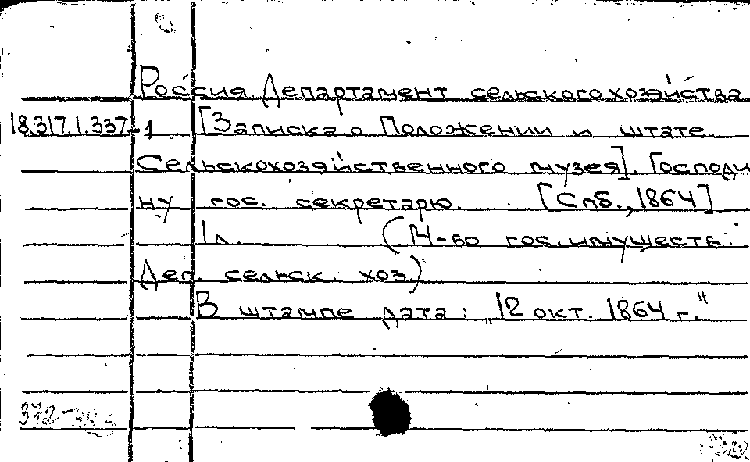 Россия. Департамент сельского хозяйства
18.317.1.337-1 [Записка о Положении и штате
Сельскохозяйственного музея]. Господи
ну гос. секретарю. [Спб., 1864]
1 л. (М-во гос. имуществ.
Деп. сельск. хоз)
В штампе дата: „12 окт. 1864 г."